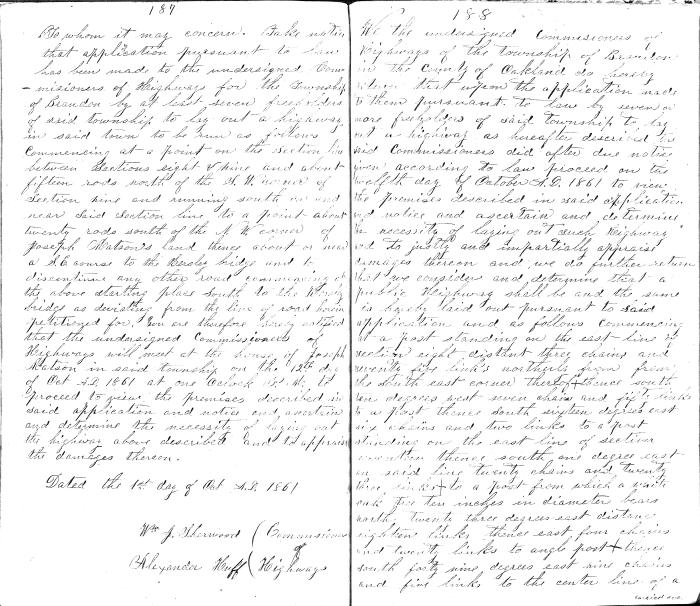 187
To whom it may concern. Take notice
that application pursuant to law
has been made to the undersigned Com
-misioners of Highways for the Township
of Brandon by at least seven freeholders
of said township to lay out a highway
in said town to be run as follows
Commencing at a point on the section line
between Sections eight & nine and about
fifteen rods north of the S. W. corner of
Section nine and running south on and
near said Section line to a point about
twenty rods south of the N. W. corner of
Joseph Watson's land thence about or near
a S.E. course to the bridge and to
discontinue any other road commencing at
the above starting place South to the
bridge as deviating from the line of road herein
petitioned for. You are therefore hereby notified
that the undersigned Commissioners of
Highways will meet at the house of Joseph
Watson in said township on the 12th day
of Oct A.D. 1861 at one Oclock P. M. to
proceed to view the premises described in
said application and notice and ascertain
and determine the necessity of laying out
the highway above described and to appraise
the damages thereon.
Dated the 1st day of Oct A.D. 1861
Wm J. Sherwood ( Commissioners
of
Alexander Huff ( Highways
188
We the undersigned Commissioners of
Highways of the township of Brandon
in the County of Oakland do hereby
return that upon the application made
to them pursuant to law by seven or
more freeholders of said township to lay
out a highway as hereafter described the
said Commissioners did after due notice
given according to law proceed on the
twelfth day of October A.D. 1861 to view
the premises described in said application
and notice and ascertain and determine
the necessity of laying out such Highway
and to justly and impartially appraise
damages thereon and we do further return
that we consider and determine that a
public Highway shall be and the same
is hereby laid out pursuant to said
application and as follows Commencing
at a post standing on the east line of
section eight distant three chains and
seventy five links northerly from from
the south east corner thereof thence south
ten degrees west seven chains and links
to a post thence south sixteen degrees east
six chains and two links to a post
standing on the east line of section
seventeen thence south one degree east
on said line twenty chains and twenty
links to a post from which a white
oak tree ten inches in diameter bears
north twenty three degrees east distant
eighteen links thence east four chains
and twenty links to angle post thence
south forty nine degrees east nine chains
and five links to the center line of a
carried over